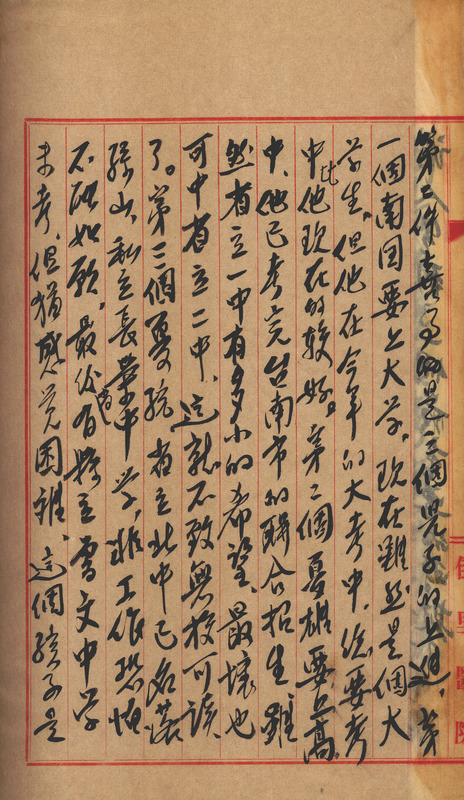 第二件喜事的是三個児子的上進，第
一個南田要上大学，現在雖然是個大
学生，但他在今年的大考中，總要考
中比他現在的較好。第二個夏雄要上高
中，他已考完台南市的聯合招生，雖
然省立一中有多少的希望，最壞也
可中省立二中，這就不致無校可讀
了。第三個夏統省立北中已名落
孫山，私立長榮中学，非工作恐怕
不能如願，最後省縣立雪文中学
未考，但猶感觉困難，這個孩子是
醫院